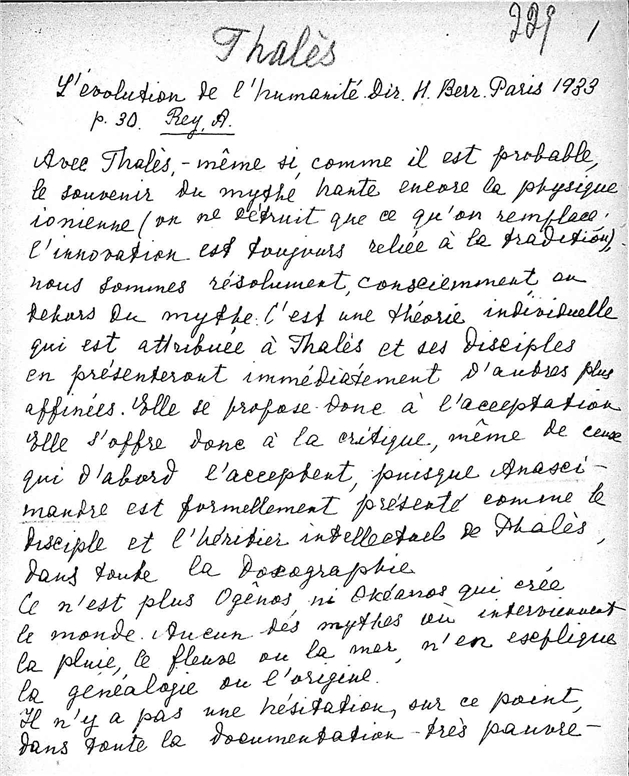 229 1
Thalès
L'évolution de l'humanité. Dir. H. Berr. Paris 1933
p. 30. Rey, A.
Avec Thalès, - même si, comme il est probable,
le souvenir du mythe hante encore la physique
ionienne (on ne détruit que ce qu'on remplace;
l'innovation est toujours reliée à la tradition),
nous sommes résolument, consciemment au
dehors du mythe. C'est une théorie individuelle
qui est attribuée à Thalès et ses disciples
en présenteront immédiatement d'autres plus
affinées. Elle se propose donc à l'acceptation
Elle s'offre donc à la critique, même de ceux
qui d'abord l'acceptent, puisque Anasci-
mandre est formellement présenté comme le
disciple et l'héritier intellectuel de Thalès,
dans toute la doxographie
Ce n'est plus Ogênos ni Okéanos qui crée
le monde. Aucun des mythes où interviennent
la pluie, le fleuve ou la mer, n'en explique
la généalogie ou l'origine.
Il n'y a pas une hésitation, sur ce point,
dans toute la documentation - très pauvre -